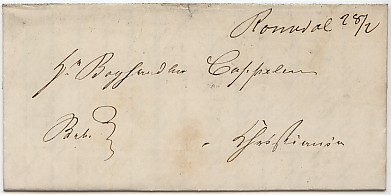 Romedal 28/2
Hr Boghandler Cappelen
Bet.
Christiania